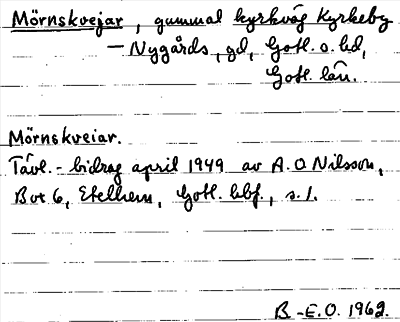 Mörnskvejar, gammal kyrkväg Kyrkeby
– Nygårds, gd, Gotl. s. hd,
Gotl. län.
Mörnskveiar.
Tävl.-bidrag april 1949 av A.O Nilsson,
Box 6, Etelhem, Gotl. bbf., s. 1.
B.-E.O. 1962.